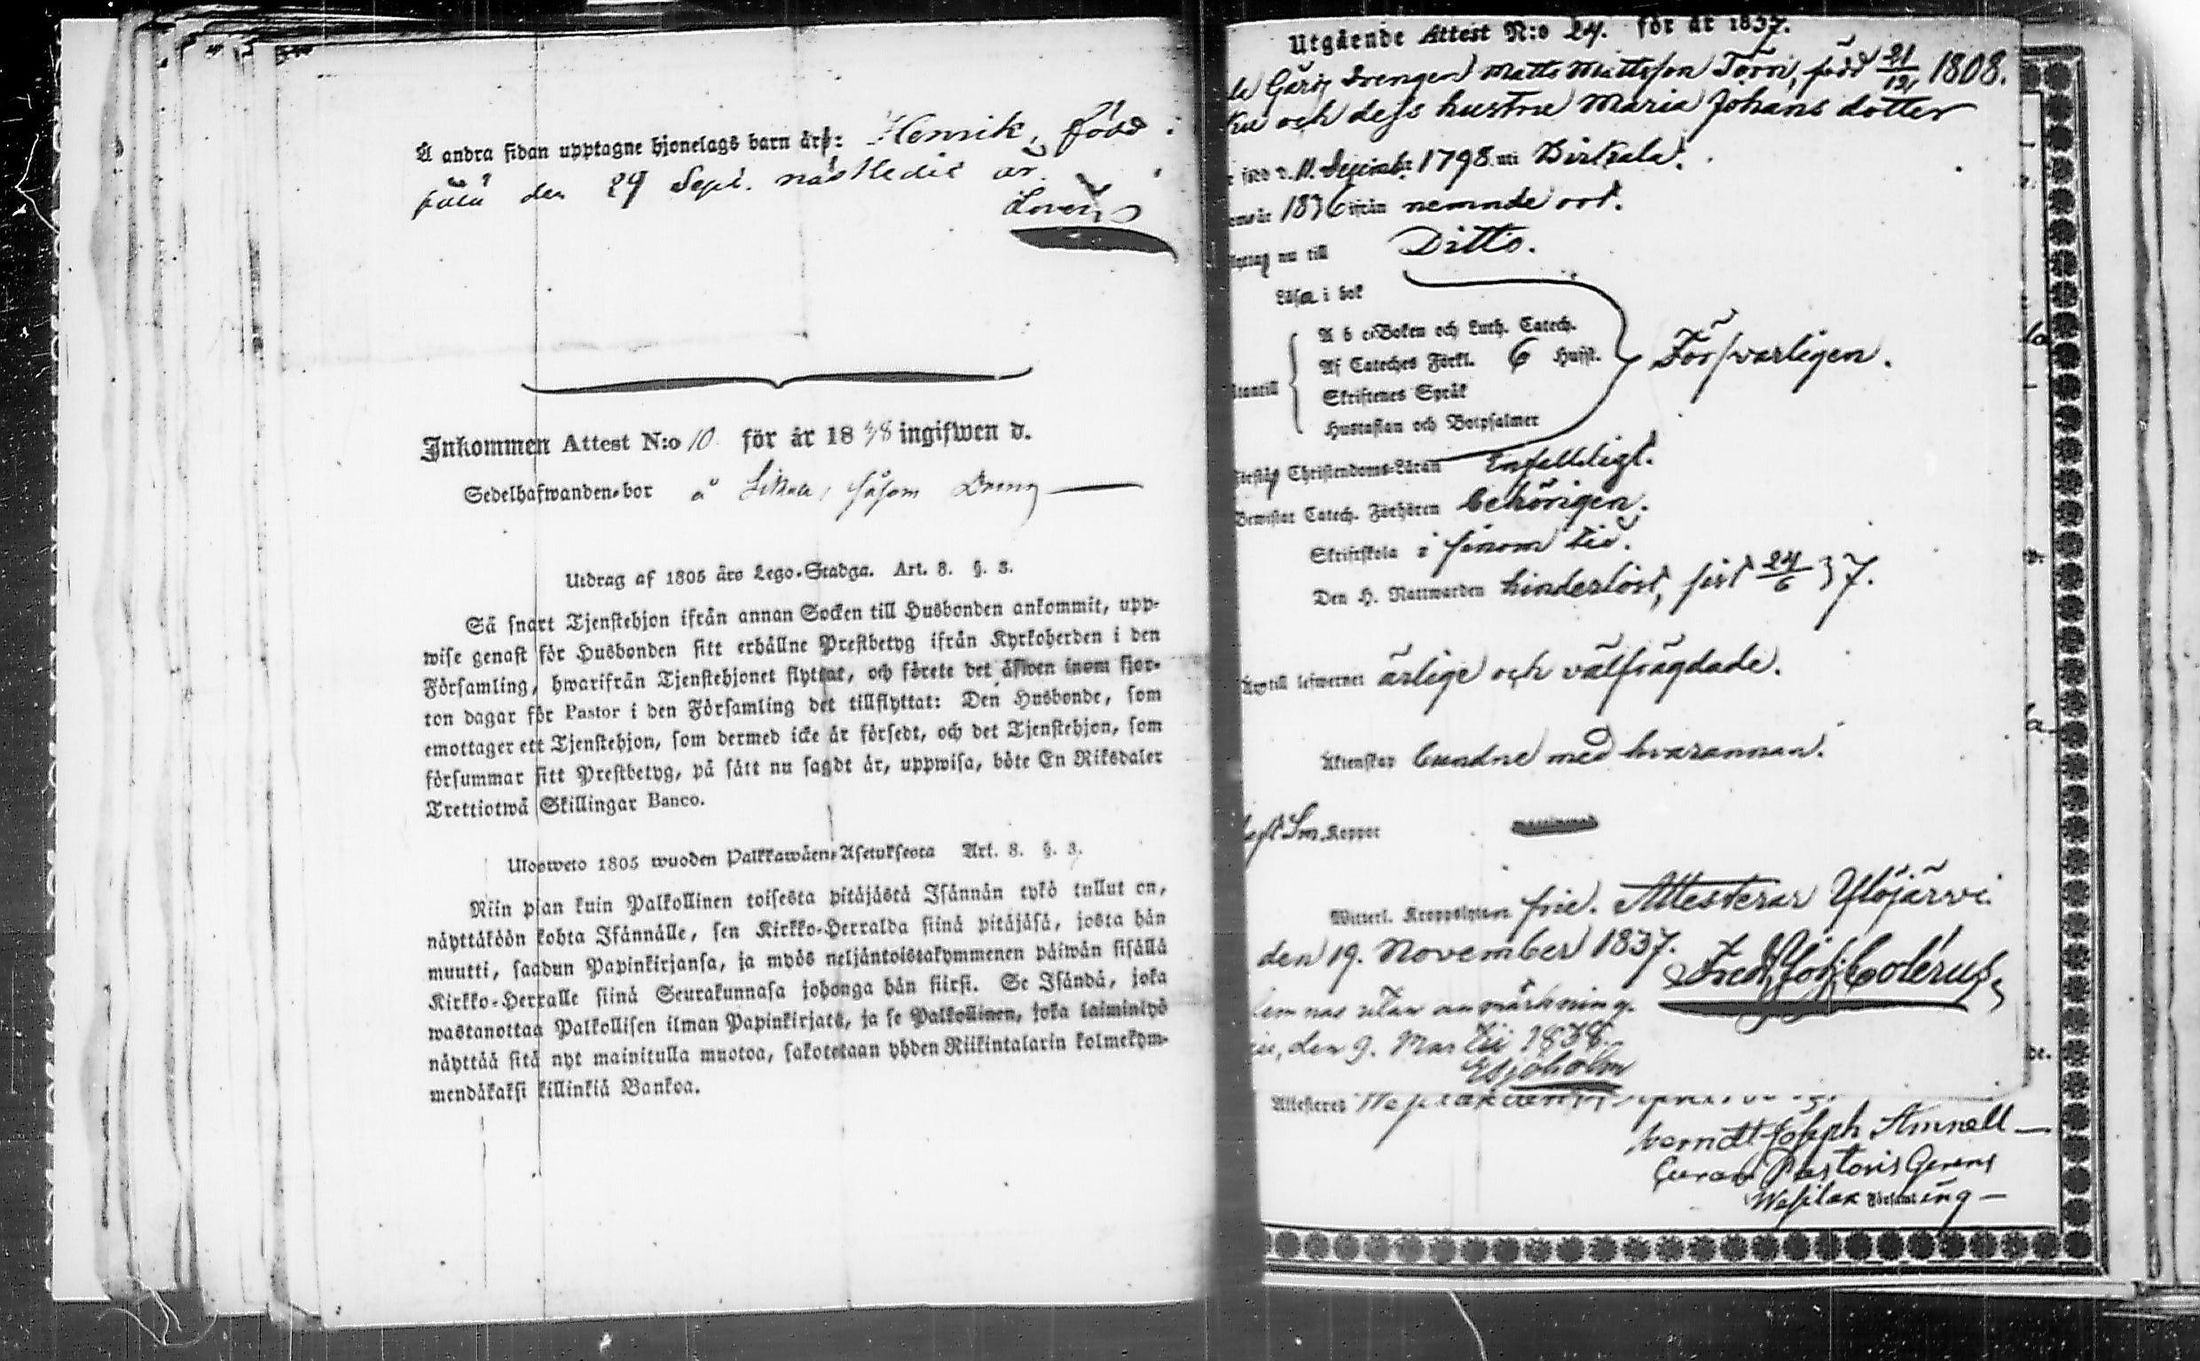 Å andra sidan upptagne hjonelags barn är: Henrik, född
den 29 Sept. näst ledit år.
Inkommen Attest N:o 10 för år 1838 ingifwen d.
Sedelhafwanden bor å såsom Dreng
Utdrag af 1805 års Lego-Stadga. Art. 8. §. 3.
Så snart Tjenstehjon ifrån annan Socken till Husbonden ankommit, upp-
wise genast för Husbonden sitt erhållne Prestbetyg ifrån Kyrkoherden i den
Församling, hwarifrån Tjenstehjonet flyttat, och förete det äfwen inom fjor-
ton dagar för Pastor i den Församling det tillflyttat: Den Husbonde, som
emottager ett Tjenstehjon, som dermed icke är försedt, och det Tjenstehjon, som
försummar sitt Prestbetyg, på sätt nu sagdt är, uppwisa, böte En Riksdaler
Trettiotwå Skillingar Banco.
Ulosweto 1805 wuoden Palkkawäen-Asetuksesta Art. 8. §. 3.
Niin pian kuin Palkollinen toisesta pitäjästä Isännän tykö tullut on,
näyttäköön kohta Isännälle, sen Kirkko-Herralda siinä pitäjäsä, josta hän
muutti, saadun Papinkirjansa, ja myös neljäntoistakymmenen päiwän sisällä
Kirkko-Herralle siinä Seurakunnasa johonga hän siirsi. Se Isändä, joka
wastanottaa Palkollisen ilman Papinkirjata, ja se Palkollinen, joka laiminlyö
näyttää sitä nyt mainitulla muotoa, sakotetaan yhden Riikintalarin kolmekym-
mendäkaksi killinkiä Bankoa.
Utgående Attest N:o 24. för år 1837.
Drengen Matts Mattsson Törn, född 21/12 1808.
och dess hustru Maria Johans dotter
född d. 11 Decembr 1798 uti Birkala.
1836 ifrån nemnde ort.
nu till Ditto.
Läsa i bok
A b c Boken och Luth. Catech.
Af Cateches Förkl. 6 Hufst. Försvarligen.
Skriftenes Språk
Hustaflan och Botpsalmer
Christendoms-Läran Enfalldigt.
Bewistat Catech. Förhören behörigen.
Skriftskola i sinom tid.
Den H. Nattwarden hinderlöst, sist 24/6 37.
till lefwernet ärlige och välfrägdade.
Äktenskap bundne med hvarannan.
Koppor
Witterl. Kroppslyten frie. Attesterar Ylöjärvi
den 19. November 1837.
Fred. Joh. Colerus
utan anmärkning.
den 9. Martii 1838.
Attesteras
Berndt Joseph Amnell
Pastoris Gerens
Wesilax Församling